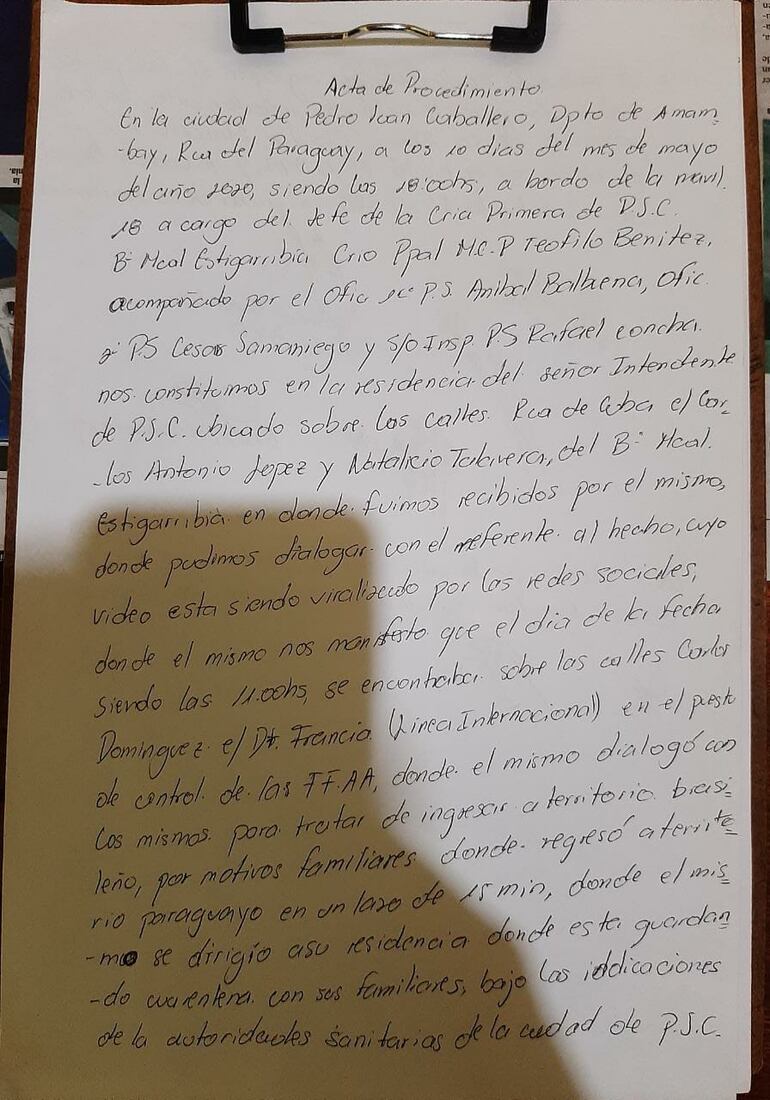 Acta de Procedimiento
En la ciudad de Pedro Juan Caballero, Dpto de Amam-
-bay, Rca del Paraguay, a los 10 dias del mes de mayo
del año 2020, siendo las 18:00hs, a bordo de la movil.
18 a cargo del Jefe de la Cria Primera de P.J.C.
B: Mcal Estigarribia Crio Ppal M.C.P Teofilo Benitez,
acompañado por el Ofic 1º P.S. Anibal Balbuena, Ofic.
2º P.S Cesar Samaniego y S/O Insp. P.S Rafael concha.
nos constituimos en la residencia del señor Intendente
de P.J.C. ubicado sobre las calles Rca de Cuba e/ Car-
-los Antonio Lopez y Natalicio Talavera, del B: Mcal.
Estigarribia en donde fuimos recibidos por el mismo,
donde pudimos dialogar con el referente al hecho, cuyo
video esta siendo viralizado por las redes sociales,
donde el mismo nos manifesto que el dia de la fecha
siendo las 11:00hs, se encontraba sobre las calles Carlos
Dominguez e/ Dr. Francia (Linea Internacional) en el puesto
de control de las FF.AA, donde el mismo dialogó con
los mismos para tratar de ingresar a territorio brasi=
leño, por motivos familiares donde regresó a territo=
rio paraguayo en un lazo de 15 min, donde el mis=
-mo se dirigio asu residencia donde esta guardan=
-do cuarentena con sus familiares, bajo las iddicaciones
de la autoridades sanitarias de la cuidad de P.J.C.